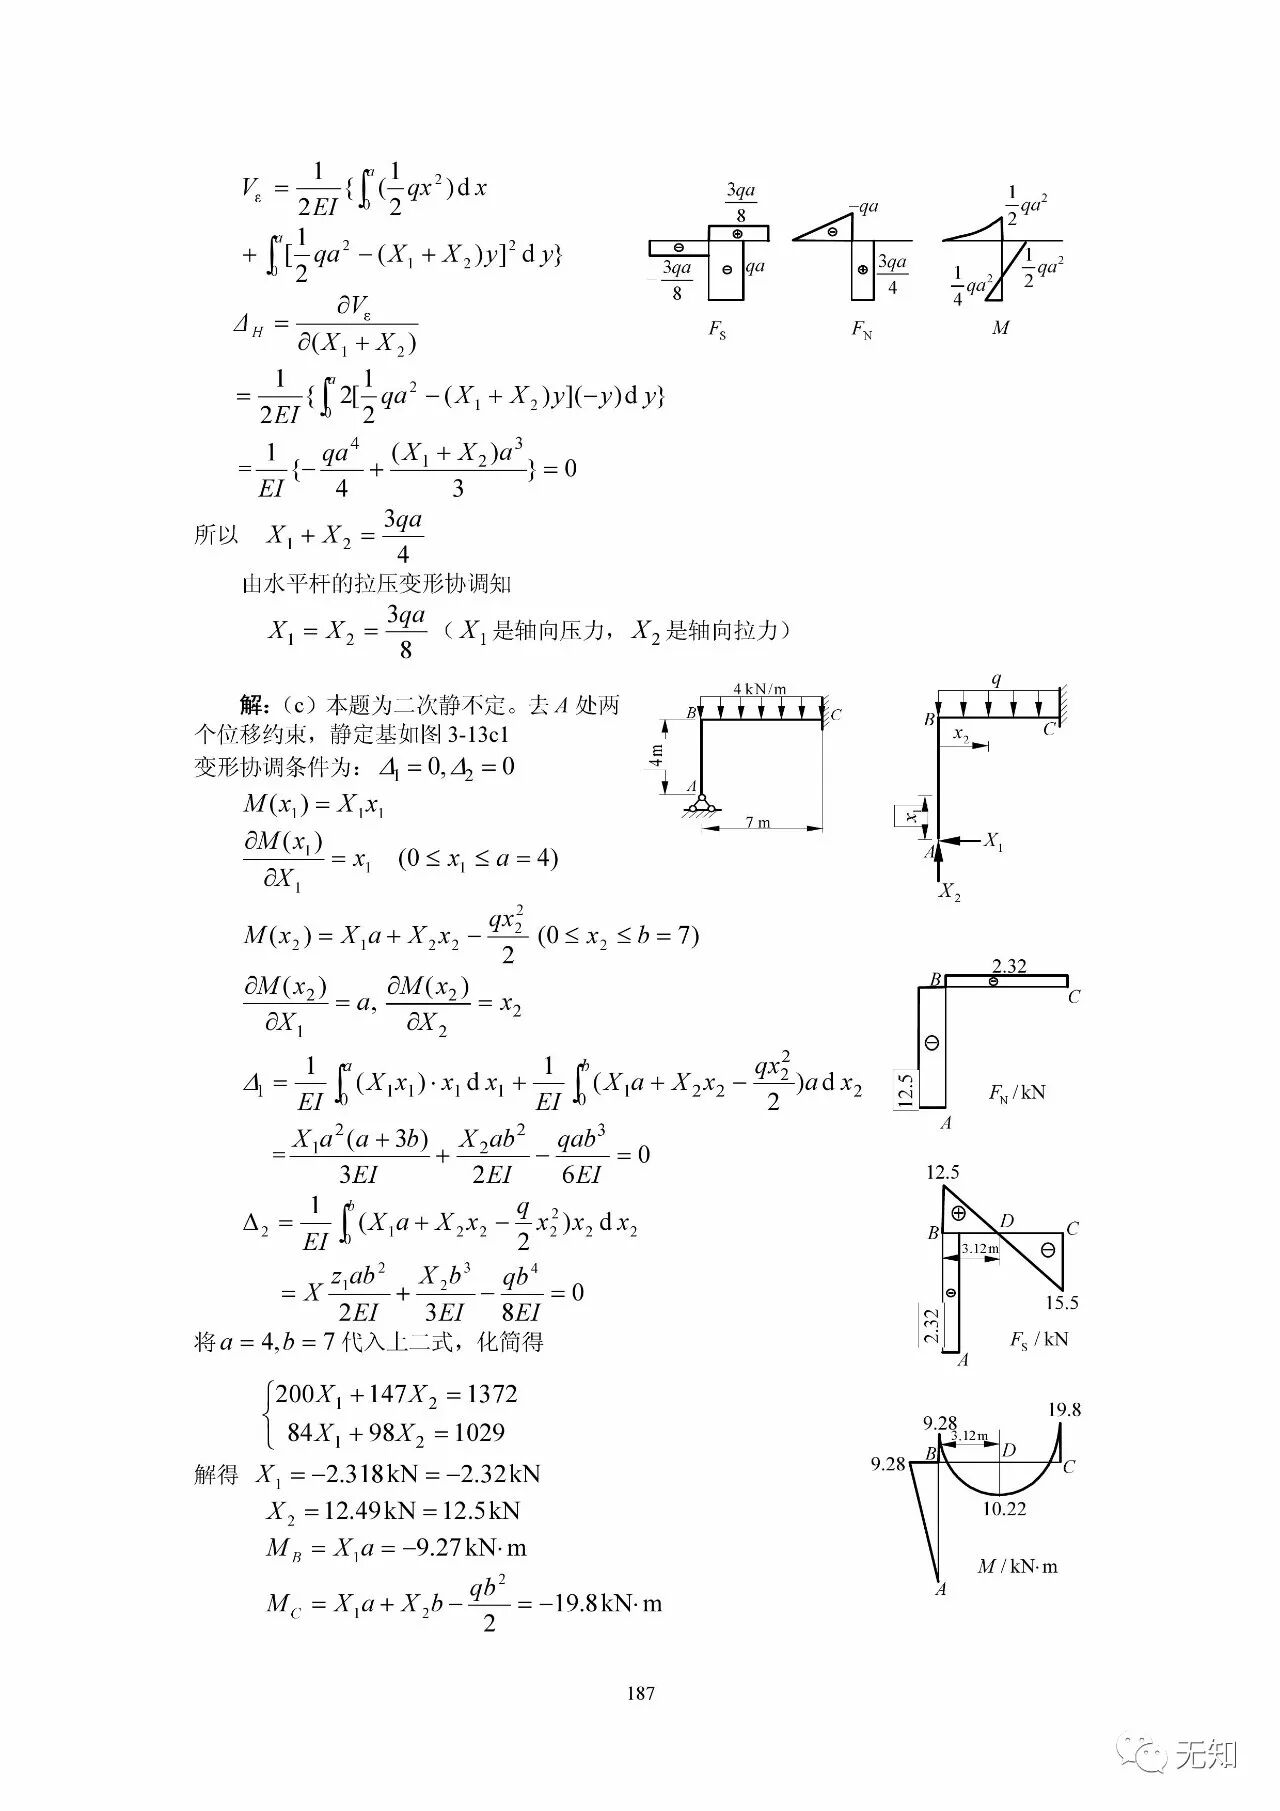 V_ε = 1/(2EI) {∫₀ᵃ (1/2 qx²)dx
+ ∫₀ᵃ [1/2 qa² − (X₁ + X₂)y]² dy}
Δ_H = ∂V_ε/∂(X₁ + X₂)
= 1/(2EI) {∫₀ᵃ 2[1/2 qa² − (X₁ + X₂)y](−y)dy}
= 1/EI {− qa⁴/4 + (X₁ + X₂)a³/3} = 0
所以 X₁ + X₂ = 3qa/4
由水平杆的拉压变形协调知
X₁ = X₂ = 3qa/8 (X₁是轴向压力，X₂是轴向拉力)
3qa/8
⊕
⊖
−3qa/8
⊖
qa
F_S
−qa
⊖
⊕
3qa/4
F_N
1/2 qa²
1/4 qa²
1/2 qa²
M
解：（c）本题为二次静不定。去 A 处两
个位移约束，静定基如图 3-13c1
变形协调条件为：Δ₁ = 0, Δ₂ = 0
M(x₁) = X₁x₁
∂M(x₁)/∂X₁ = x₁ (0 ≤ x₁ ≤ a = 4)
M(x₂) = X₁a + X₂x₂ − qx₂²/2 (0 ≤ x₂ ≤ b = 7)
∂M(x₂)/∂X₁ = a, ∂M(x₂)/∂X₂ = x₂
Δ₁ = 1/EI ∫₀ᵃ (X₁x₁)·x₁dx₁ + 1/EI ∫₀ᵇ (X₁a + X₂x₂ − qx₂²/2)adx₂
= X₁a²(a + 3b)/3EI + X₂ab²/2EI − qab³/6EI = 0
Δ₂ = 1/EI ∫₀ᵇ (X₁a + X₂x₂ − q/2 x₂²)x₂dx₂
= X z₁ab²/2EI + X₂b³/3EI − qb⁴/8EI = 0
将 a = 4, b = 7 代入上二式，化简得
{200X₁ + 147X₂ = 1372
84X₁ + 98X₂ = 1029
解得 X₁ = −2.318kN = −2.32kN
X₂ = 12.49kN = 12.5kN
M_B = X₁a = −9.27kN·m
M_C = X₁a + X₂b − qb²/2 = −19.8kN·m
4kN/m
B
C
4m
A
7 m
q
B
C
x₂
x₁
A
X₁
X₂
2.32
B
⊖
C
⊖
12.5
F_N / kN
A
12.5
⊕
D
C
B
3.12m
⊖
⊖
2.32
15.5
F_S / kN
A
19.8
9.28
3.12m
B
D
9.28
C
10.22
M / kN·m
A
187
无知